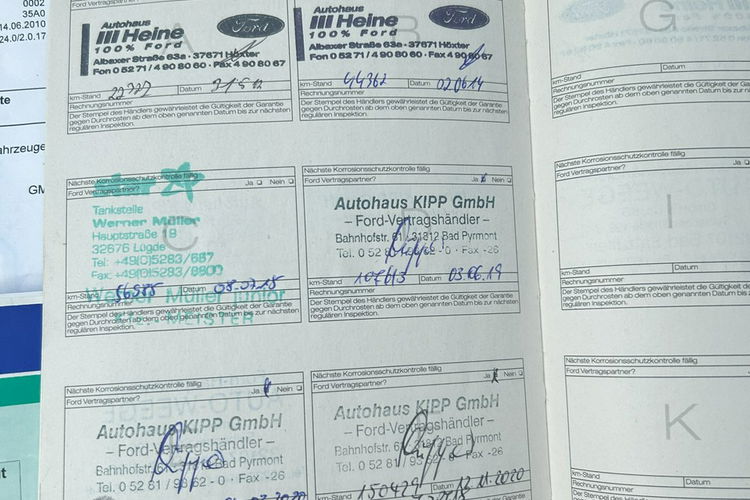 0002
35A0
14.06.2010
24.0/2.0.17
ahrzeuge
GM
Autohaus
Heine
100% Ford
Albaxer Straße 63a · 37671 Höxter
Fon 0 52 71 / 4 90 80 60 · Fax 4 90 80 67
Ford
km-Stand
Datum
Rechnungsnummer
Der Stempel des Händlers gewährleistet die Gültigkeit der Garantie
gegen Durchrosten ab dem oben genannten Datum bis zur nächsten
regulären Inspektion.
Autohaus
Heine
100% Ford
Albaxer Straße 63a · 37671 Höxter
Fon 0 52 71 / 4 90 80 60 · Fax 4 90 80 67
Ford
km-Stand 44362 Datum 02.06.14
Rechnungsnummer
Der Stempel des Händlers gewährleistet die Gültigkeit der Garantie
gegen Durchrosten ab dem oben genannten Datum bis zur nächsten
regulären Inspektion.
Nächste Korrosionsschutzkontrolle fällig
Ford Vertragspartner? Ja Nein
star
Tankstelle
Werner Müller
Hauptstraße 18
32676 Lügde
Tel: +49(0)5283/687
Fax: +49(0)5283/9800
C
km-Stand 56585 Datum 08.07.15
Rechnungsnummer
Der Stempel des Händlers gewährleistet die Gültigkeit der Garantie
gegen Durchrosten ab dem oben genannten Datum bis zur nächsten
regulären Inspektion.
Nächste Korrosionsschutzkontrolle fällig
Ford Vertragspartner? Ja Nein
Autohaus KIPP GmbH
– Ford-Vertragshändler –
Bahnhofstr. 61 · 31812 Bad Pyrmont
Tel. 0 52 81 Fax -26
km-Stand 107613 Datum 03.06.19
Rechnungsnummer
Der Stempel des Händlers gewährleistet die Gültigkeit der Garantie
gegen Durchrosten ab dem oben genannten Datum bis zur nächsten
regulären Inspektion.
Nächste Korrosionsschutzkontrolle fällig
Ford Vertragspartner? Ja Nein
Autohaus KIPP GmbH
– Ford-Vertragshändler –
Bahnhofstr. Bad Pyrmont
Tel. 0 52 81 / 93 62 - 0 · Fax -26
Nächste Korrosionsschutzkontrolle fällig
Ford Vertragspartner? Ja Nein
Autohaus KIPP GmbH
– Ford-Vertragshändler –
Bahnhofstr. Bad Pyrmont
Tel. 0 52 81 Fax -26
150429 Datum 12.11.2020
G
km-Stand Datum
Rechnungsnummer
Der Stempel des Händlers gewährleistet
gegen Durchrosten ab dem oben genannten
regulären Inspektion.
Nächste Korrosionsschutzkontrolle fällig
Ford Vertragspartner? Ja
I
km-Stand Datum
Rechnungsnummer
Der Stempel des Händlers gewährleistet die
gegen Durchrosten ab dem oben genannten
regulären Inspektion.
Nächste Korrosionsschutzkontrolle fällig
Ford Vertragspartner?
K
km-Stand Datum
Rechnungsnummer